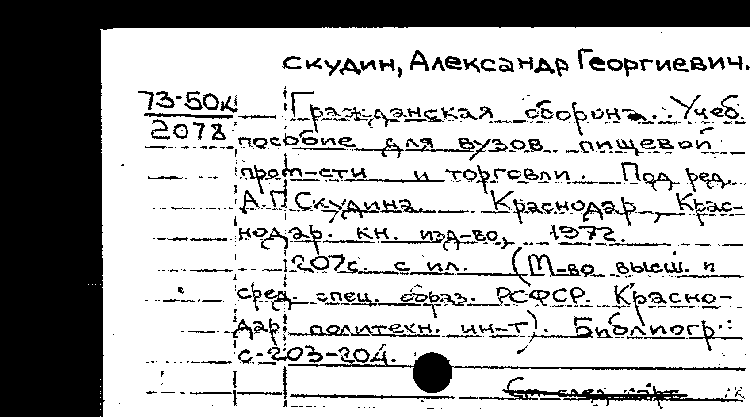 Скудин, Александр Георгиевич.
73-50к
Гражданская оборона. Учеб.
2078
пособие для вузов пищевой
пром-сти и торговли. Под ред.
А.Г.Скудина. Краснодар, Крас-
нодар. кн. изд-во, 1972.
207с. с ил. (М-во высш. и
сред. спец. образ. РСФСР. Красно-
дар. политехн. ин-т). Библиогр.:
с. 203-204.
См. след. карт.